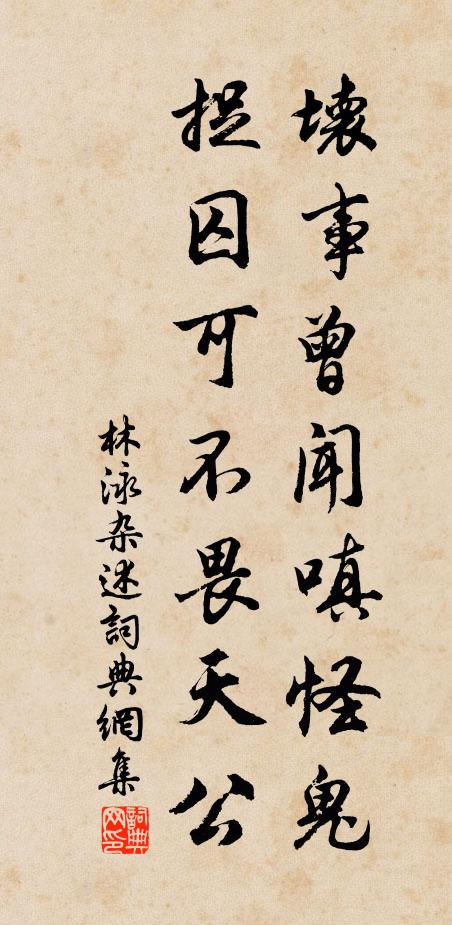 壞事曾聞嗔怪鬼
捉囚可不畏天公
林泳杂述詞典網集
詞典网印